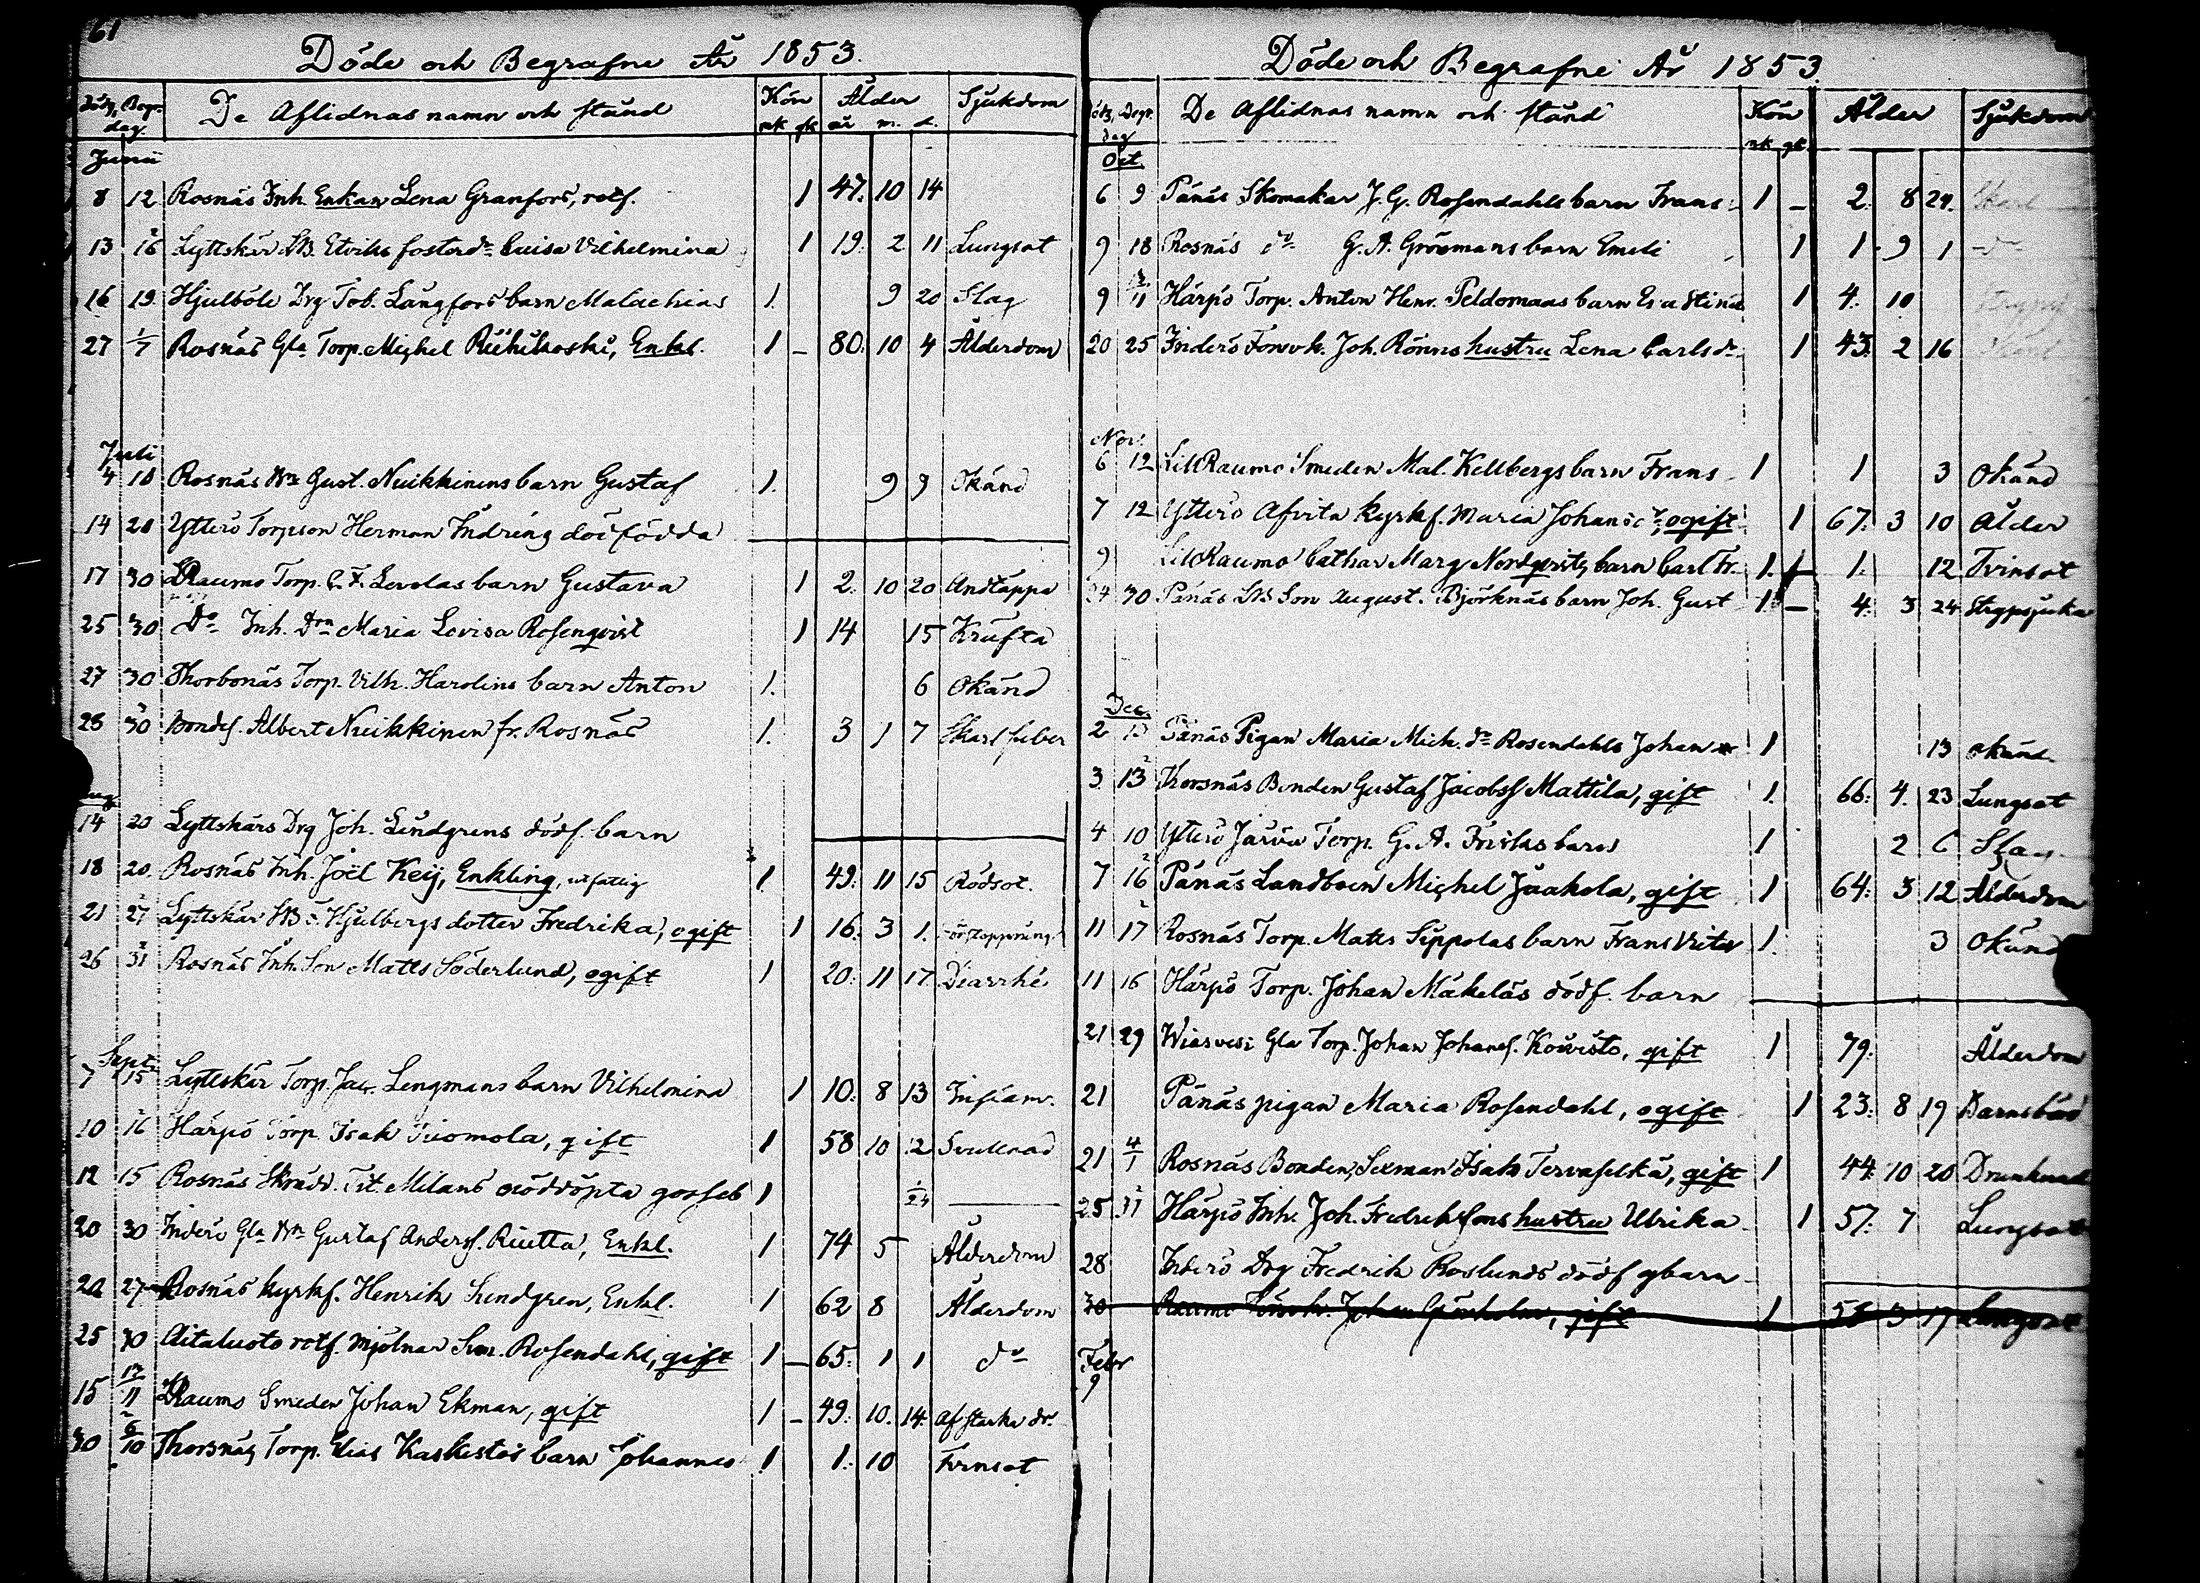 61
Döde och Begrafne År 1853.
Döds Begr. dag De Aflidnas namn och stånd Kön mk qk Ålder år m. d. Sjukdom
Junii
8 12 Rosnäs Inh. Enkan Lena Granfors, rotf. 1 47. 10 14
13 16 Lyttskär Etviks fosterdr Luisa Vilhelmina 1 19. 2 11 Lungsot
16 19 Hjulböle Drg Tob. Långfors barn Malachias 1. 9 20 Slag
27 1/7 Rosnäs Gla Torp. Michel Riihikoski, Enkl. 1 – 80. 10 4 Ålderdom
Juli
4 10 Rosnäs Bn Gust. Nuikkinens barn Gustaf 1. 9 9 Okänd
14 20 Ytterö Torpson Herman Indring dödfödda
17 30 LRaumo Torp. Levolas barn Gustava 1 2. 10 20 Andtäppa
25 30 Do Inh. Drn Maria Lovisa Rosenqvist 1 14 15 Kräfta
27 30 Thorbonäs Torp. Vilh. Harolins barn Anton 1. 6 Okänd
28 30 Bondes. Albert Nuikkinen fr. Rosnäs 1. 3 1 7 Skarl feber
Aug
14 20 Lyttskärs Drg Joh. Lindgrens dödf. barn
18 20 Rosnäs Inh. Joël Keij, Enkling, utfattig 1 49. 11 15 Rödsot.
21 27 Lyttskär Hjulbergs dotter Fredrika, ogift 1 16. 3 1.
26 31 Rosnäs Inh. Son Matts Söderlund, ogift 1 20. 11 17 Diarrhé
Sept.
7 15 Lyttskär Torp. Jac. Lengmans barn Vilhelmina 1 10. 8 13 Inflam.
10 16 Härpö Torp. Isak Tuomola, gift 1 58 10 12 Svullnad
12 15 Rosnäs Skrädd. Tit. Milans nöddöpta gosseb 1 1/24
20 30 Inderö Gla Bn Gustaf Anderss. Riutta, Enkl. 1 74 5 Ålderdom
20 27 Rosnäs kyrkf. Henrik Lindgren, Enkl. 1 62 8 Ålderdom
25 30 Aitaluoto rotf. Mjölnar Sim. Rosendahl, gift 1 – 65. 1 1 do
15 11 LRaumo Smeden Johan Ekman, gift 1 – 49. 10. 14. af starke dr.
30 2/10 Thorsnäs Torp. Elias Kaskistos barn Johannes 1 1. 10 Tvinsot
Döde och Begrafne År 1853.
Döds, Begr. dag De Aflidnas namn och stånd Kön mk qk Ålder Sjukdom
Oct.
6 9 Pänäs Skomakar J. G. Rosendahls barn Frans 1 – 2. 8 24. Skarl
9 18 Rosnäs do G. A. Grönmans barn Emeli 1 1 9 1 do
9 11 Härpö Torp. Anton Henr. Peldomaas barn Eva Stina 1 4. 10
20 25 Inderö Torp. Joh. Rönns hustru Lena Carlsdr 1 43. 2 16
Nov.
6 12 LillRaumo Smeden Mal. Kellbergs barn Frans 1 1 3 Okänd
7 12 Ytterö Afvita Kyrkf. Maria Johansdr, ogift 1 67. 3 10 Ålder
9 LillRaumo Cathar Marg Nordqvists barn Carl Fr. 1. 1. 12 Tvinsot
24 30 Pänäs Son August. Björknäs barn Joh. Gust 1 – 4. 3 24 Strypsjuka
Dec.
2 13 Pänäs Pigan Maria Mich. dr Rosendahls Johan 1 13 okänd.
3. 13 Korsnäs Bonden Gustaf Jacobss Mattila, gift 1. 66. 4. 23 Lungsot
4 10 Ytterö Järvia Torp. G. A. Friskas barn 1 2 6 Slag.
7 16 Pänäs Landboen Michel Jaakola, gift 1 64. 3 12 Ålderdom
11 17 Rosnäs Torp. Matts Sippolas barn Frans Victor 1. 3 Okänd
11 16 Härpö Torp. Johan Mäkeläs dödf. barn
21 29 Wiasvesi Gla Torp. Johan Johans. Koivisto, gift 1 79. Ålderdom
21 Pänäs pigan Maria Rosendahl, ogift 1 23. 8 19 Barnsbörd
21 4/1 Rosnäs Bonden, Sexman Isak Tervaselkä, gift 1 44. 10 20 Drunknad
25 31 Härpö Inh. Joh. Fredrikssons hustru Ulrika 1 57. 7 Lungsot
28 Inderö Drg Fredrik Roslunds dödf gbarn
30 Raumo Johan gift 1 58 3 17 Lungsot
Febr
9